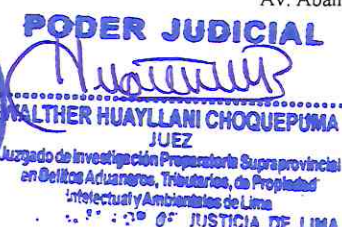 Av. Aban
PODER JUDICIAL
WALTHER HUAYLLANI CHOQUEPUMA
JUEZ
Juzgado de Investigación Preparatoria Supraprovincial
en Delitos Aduaneros, Tributarios, de Propiedad
Intelectual y Ambientales de Lima
JUSTICIA DE LIMA